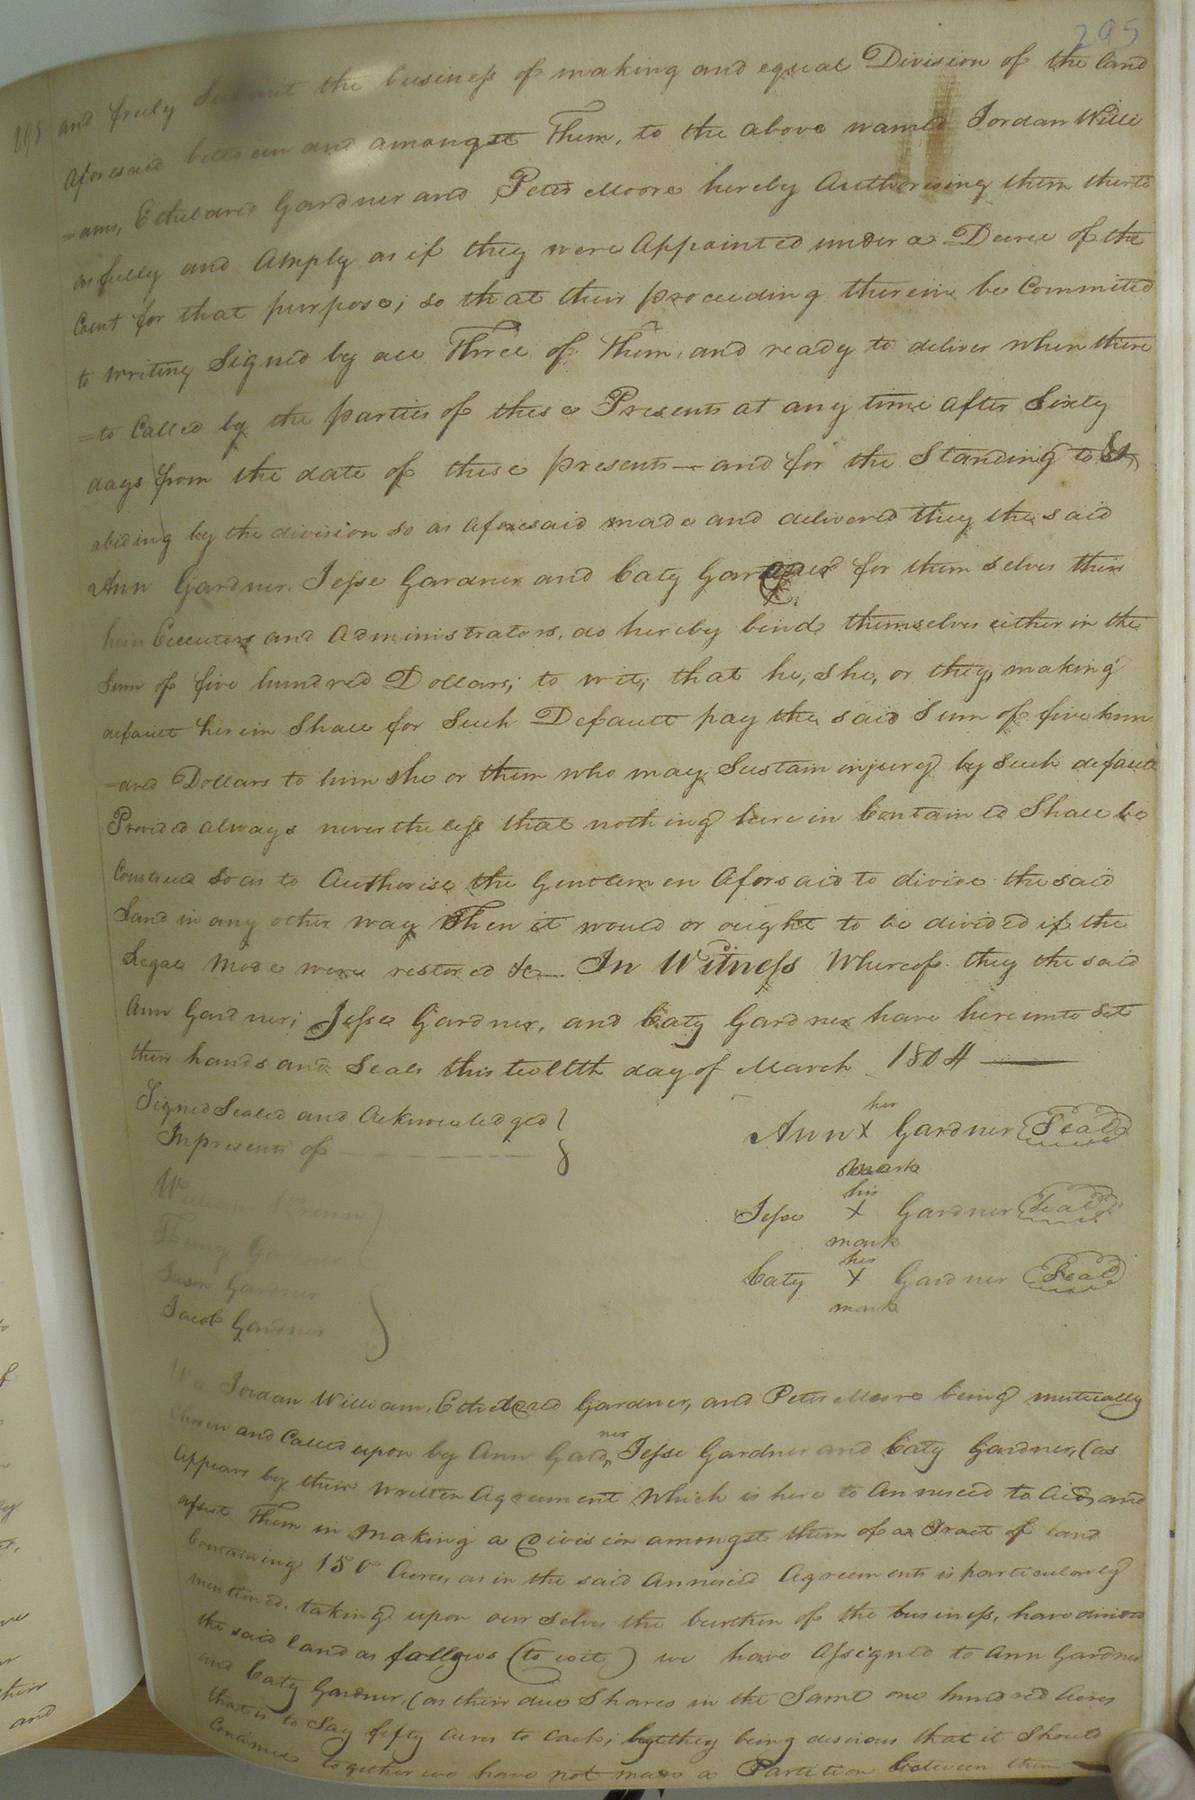 295
and freely Submit the business of making and equal Division of the land
aforesaid between and amongst Them, to the above named Jordan Willi
=ams, Etheldred Gardner and Peter Moore hereby Authorising them therto
as fully and Amply as if they were Appointed under a Decree of the
Court for that purpose; so that their proceeding therein be Commited
to writing Signed by all Three of Them, and ready to deliver when there
=to Called by the parties of these Presents at any time after Sixty
days from the date of these presents — and for the Standing to &
abiding by the division so as Aforesaid made and delivered they the said
Ann Gardner, Jesse Gardner and Caty Gardner for them selves their
heirs Executors and Administrators, do hereby bind themselves either in the
Sum of five hundred Dollars; to wit; that he, she, or they, making
default herein Shall for Such Default pay the said Sum of five hun
=dred Dollars to him she or them who may Sustain injury by Such default
Provided always nevertheless that nothing herein Contained Shall be
Construed So as to Authorise the Gentlemen Aforsaid to divide the said
Land in any other way Then it would or ought to be divided if the
Legal Mode were restored &c — In Witness Whereof they the said
Ann Gardner; Jesse Gardner, and Caty Gardner have hereunto Set
their hands and Seals this twelfth day of March 1804 —
Signed Sealed and Acknowledged
In presents of
her
Ann X Gardner Seal
mark
his
Jesse X Gardner Seal
mark
her
Caty X Gardner Seal
mark
Jason Gardner
Jacob Gardner
We Jordan William, Etheldred Gardner, and Peter Moore being mutually
Chosen and Called upon by Ann Gardner, Jesse Gardner and Caty Gardner, (as
Appears by their written Agreement which is here to Annexed to Aid, and
assist Them in Making a Division amongst them of a Tract of land
Containing 150 Acres, as in the said Annexed Agreement is particularly
mentioned, taking upon our selves the burthen of the business, have divided
the said land as follows (to wit) we have Assigned to Ann Gardner
and Caty Gardner, (as their due Shares in the Same one hundred Acres
that is to Say fifty acres to each; but they being desirous that it Should
Continue together we have not made a Partition between them